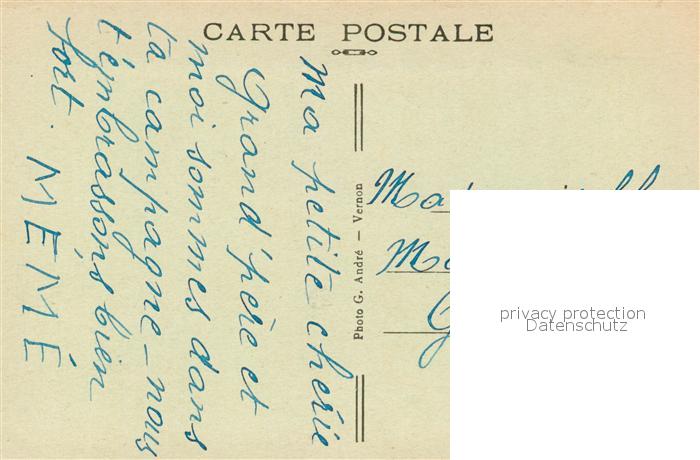 CARTE POSTALE
Ma petite chérie
Grand'père et
moi sommes dans
la campagne _ nous
t'embrassons bien
fort.
MEMÉ
Photo G. André — Vernon
privacy protection
Datenschutz